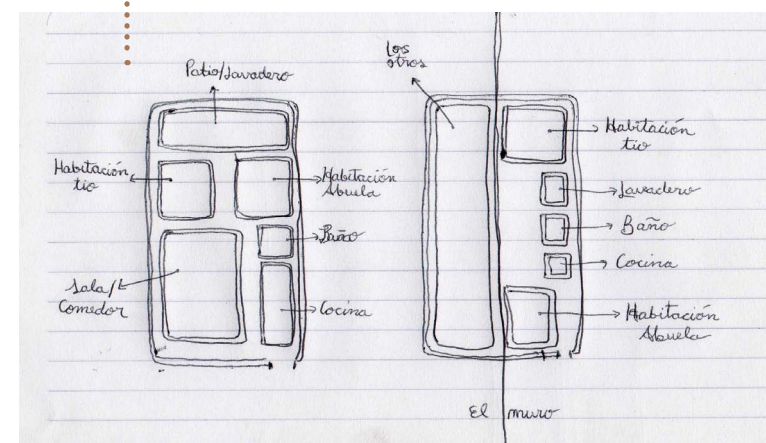 Patio/Lavadero
Habitación
tio
Habitación
Abuela
Baño
Sala/
Comedor
Cocina
Los
otros
Habitación
tio
Lavadero
Baño
Cocina
Habitación
Abuela
El muro